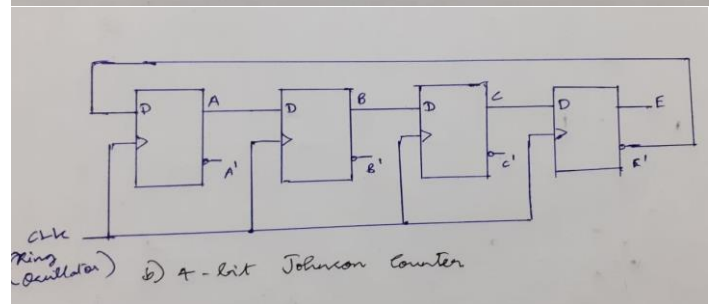 D A D B D C D E
A' B' C' E'
CLK
(Ring
Oscillator) b) 4-bit Johnson Counter